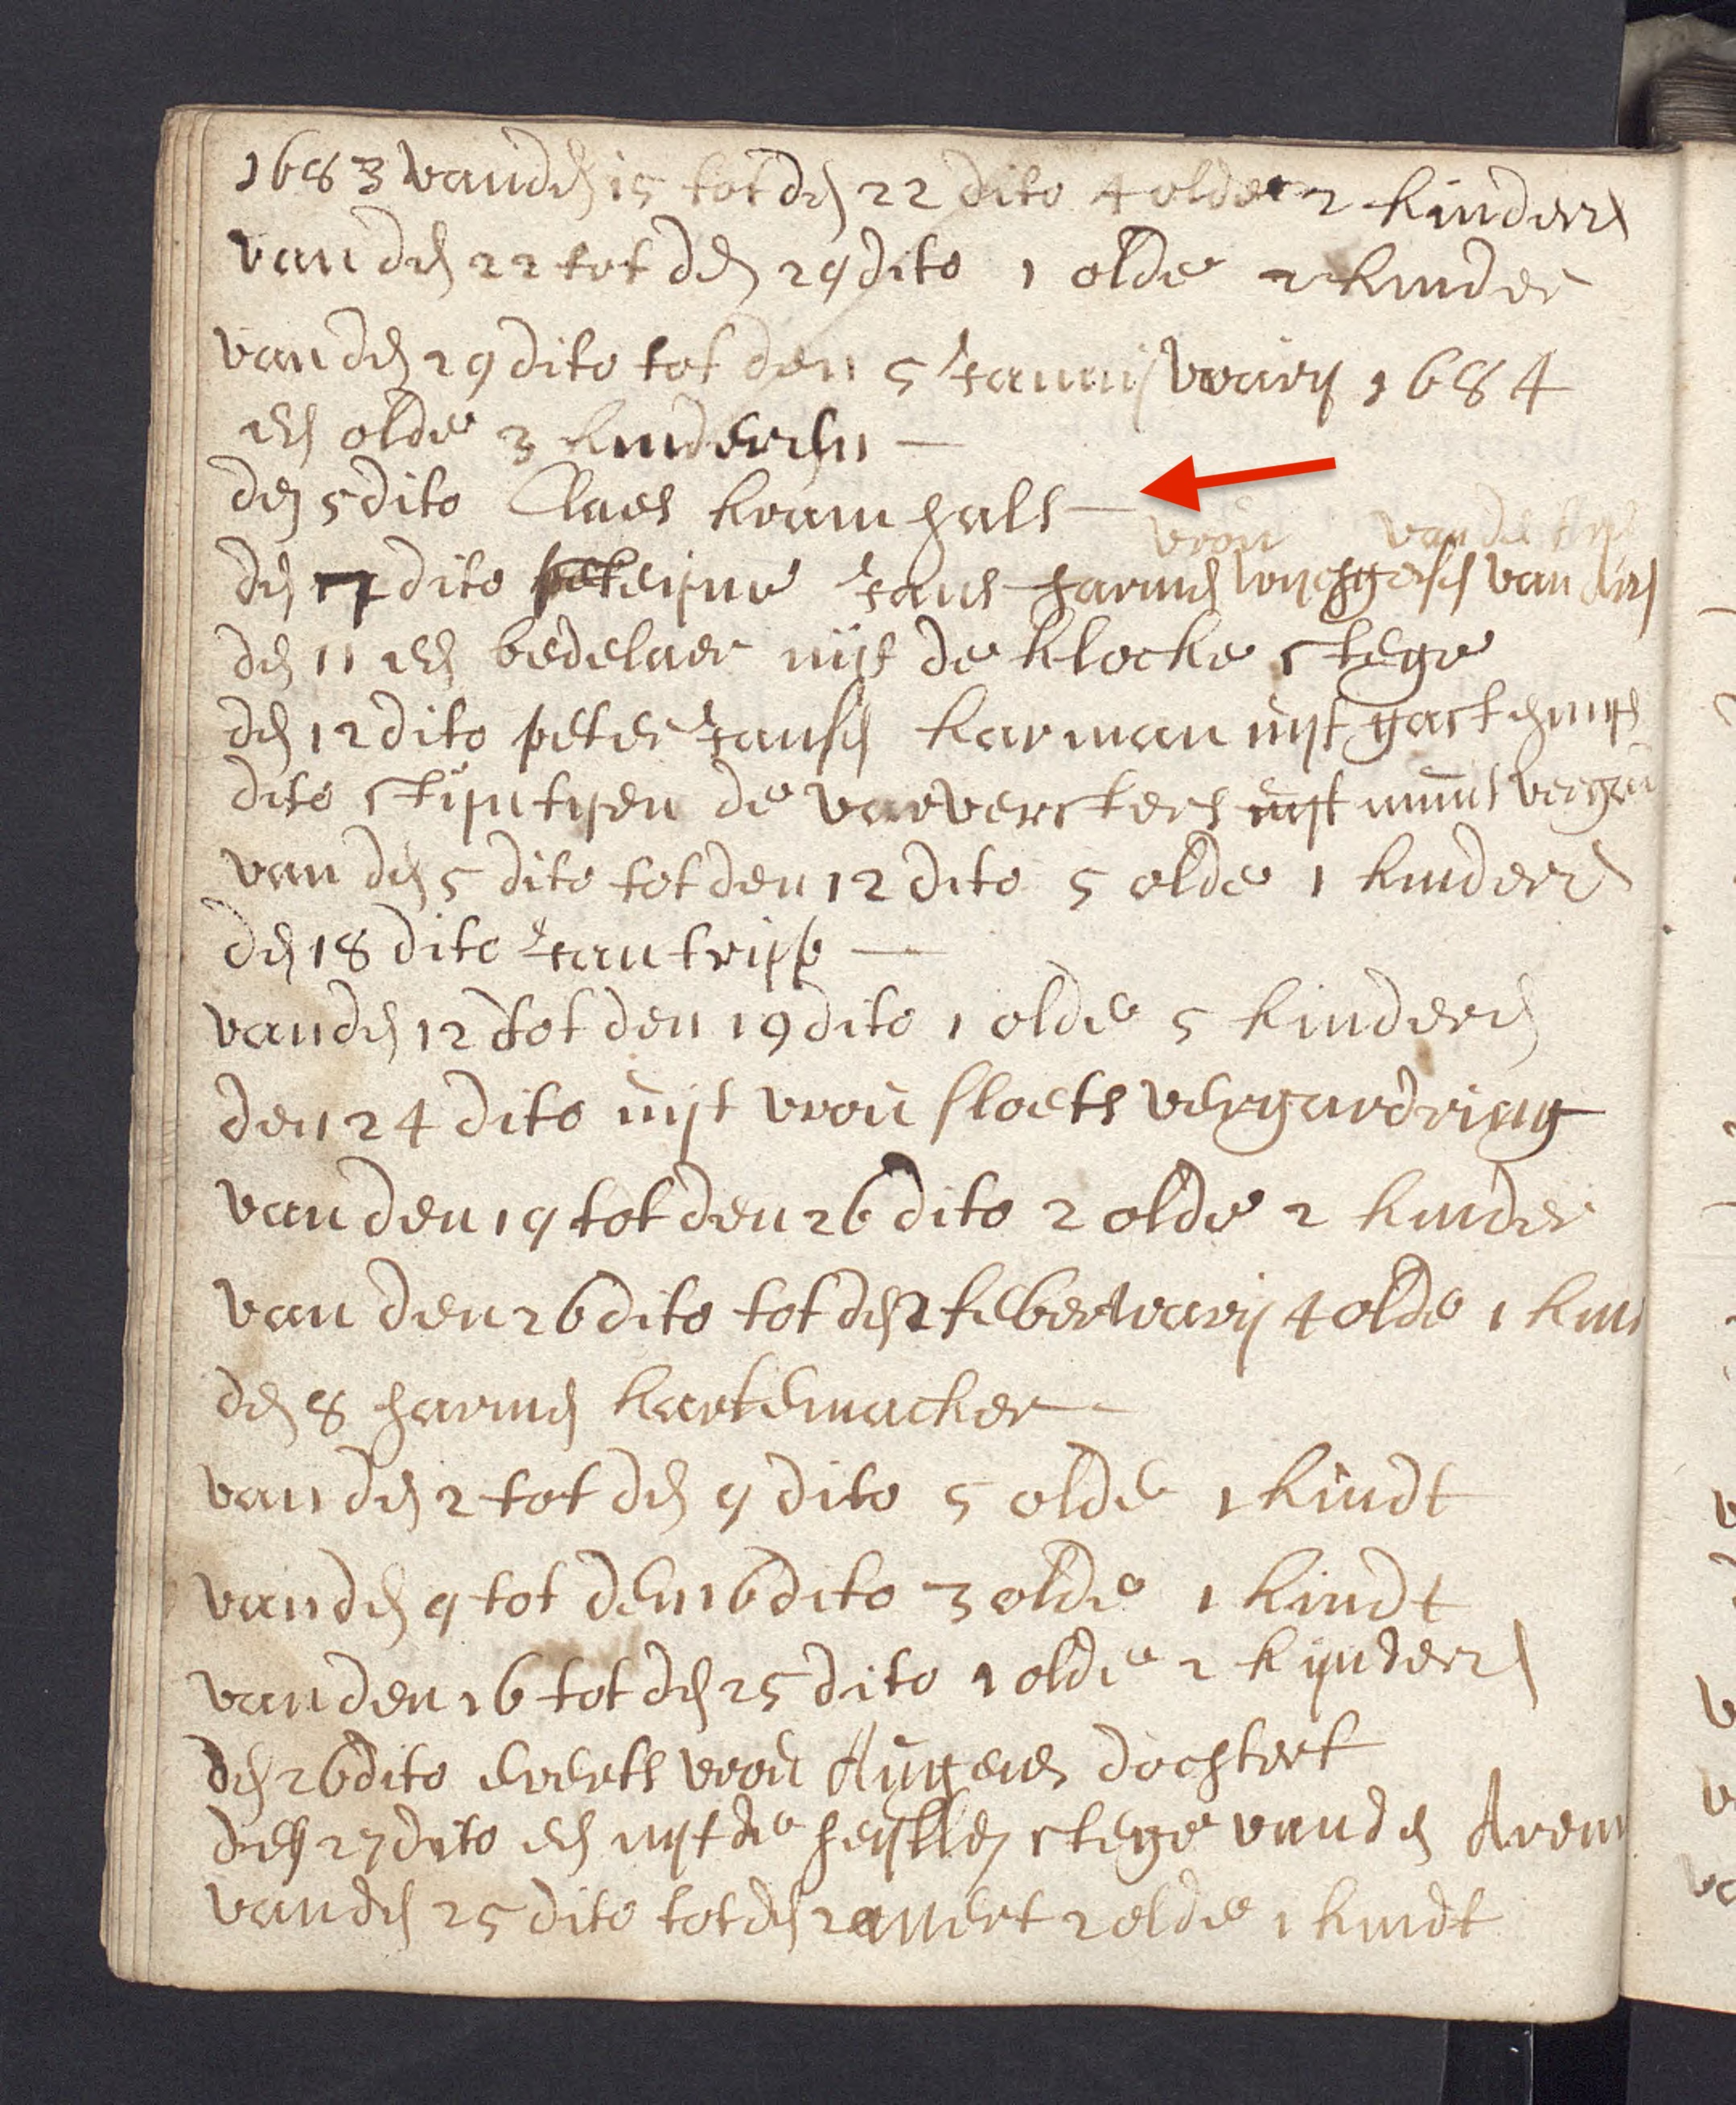 1683 vanden 15 tot den 22 dito 4 olde 2 kinderen
van den 22 tot den 29 dito 1 olde 2 kinder
van den 29 dito tot den 5 Jannij warij 1684
een olde 3 kinderen
den 5 dito Claes kramhals
vrou van de
den 7 dito Jans harmen van den
den 11 een bedelaer uijt de klocke stege
den 12 dito peter Jansen karman uijt gasthuijs
dito stijntijen de varversters uijt
van den 5 dito tot den 12 dito 5 olde 1 kinderen
den 18 dito Jan tripp
van den 12 tot den 19 dito 1 olde 5 kinderen
den 24 dito uijt vrou sloets vergardring
van den 19 tot den 26 dito 2 olde 2 kinder
van den 26 dito tot den 2 feberwarij 4 olde 1 kin
den 8 harmen kartemacker
van den 2 tot den 9 dito 5 olde 1 kindt
van den 9 tot den 16 dito 3 olde 1 kindt
van den 16 tot den 25 dito 1 olde 2 kijnderen
den 26 dito everts vrou dochter
den 27 dito een uijt de stege van den
van den 25 dito tot den 2 mert 2 olde 1 kindt